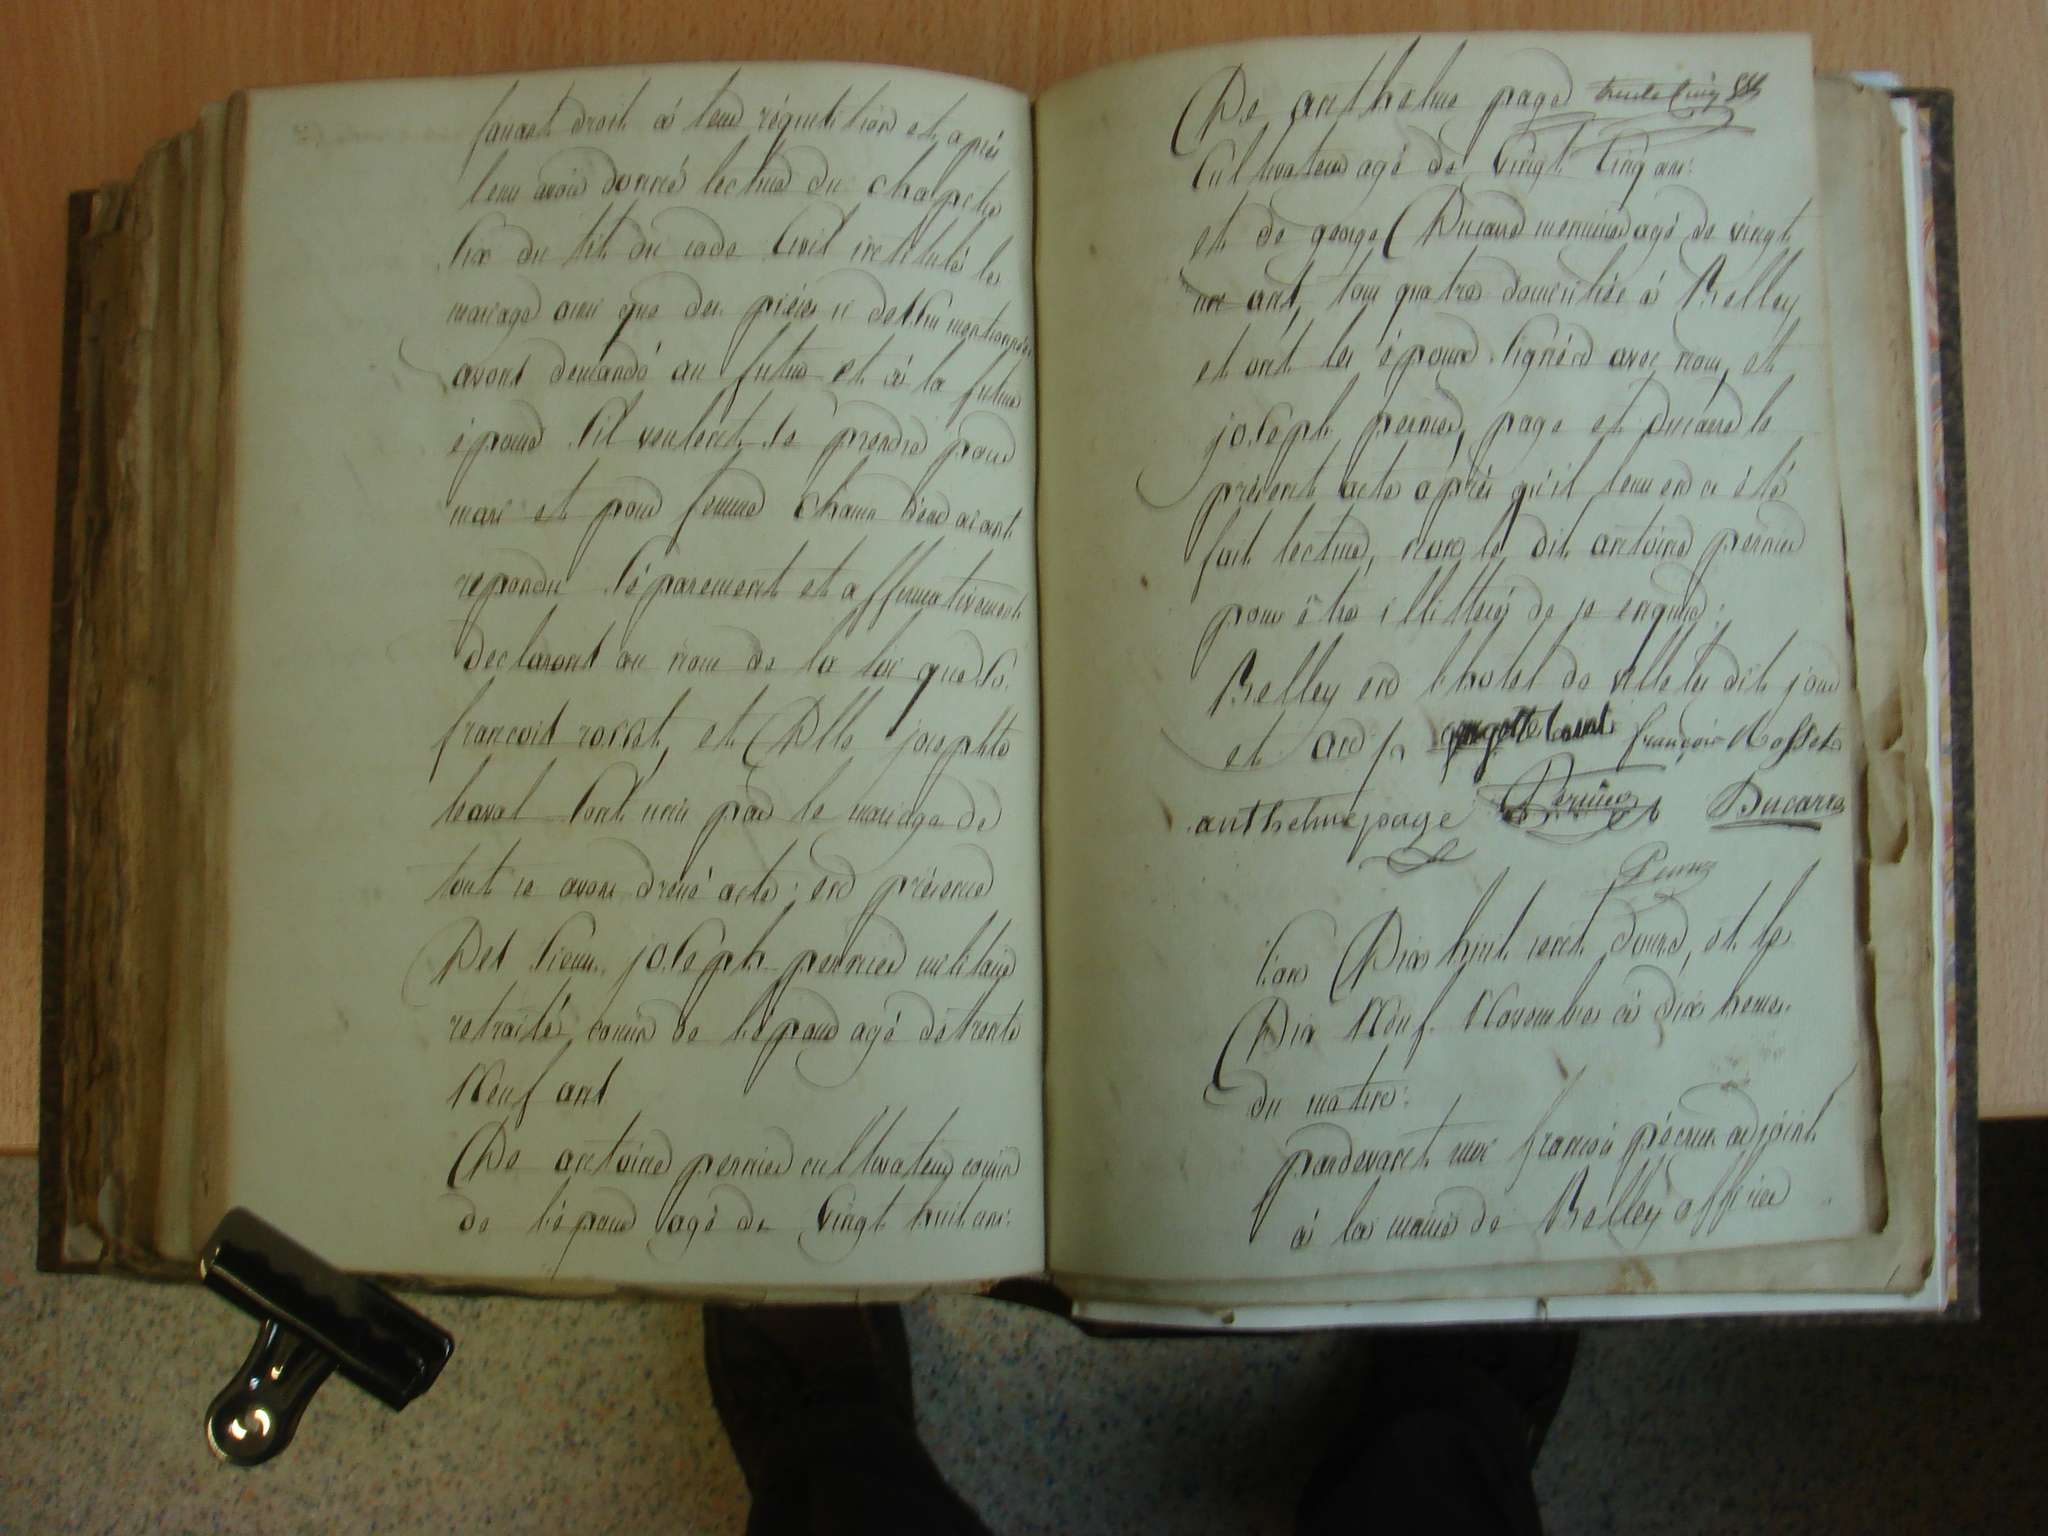 faisant droit à leur réquisition et après
leur avoir donné lecture du chapitre
six du tit du code Civil intitulé le
mariage ainsi que des pièces ci dessus mentionnées
avons demandé au futur et à la future
épouse s'il veulent se prendre pour
mari et pour femme chacun d'eux aiant
repondu séparement et affirmativement
declarons au nom de la loi que Sr.
francois rosset, et Dlle josephte
laval sont unis par le mariage de
tout ce avons dressé acte; en présence
Des Sieurs joseph pernier militaire
retraité, cousin de l'époux agé de trente
Neuf ans
De antoine pernier cultivateur cousin
de l'époux agé de vingt huit ans.
De anthelme page trente cinq
Cultivateur agé de vingt cinq ans.
et de george Ducarre menuisier agé de vingt
un ans, tous quatre domiciliés à Belley
et ont les époux signéra avec nous, et
joseph pernier, page et Ducarre le
présent acte après qu'il leur en a été
fait lecture, non le dit antoine pernier
pour être illitteré de ce enquis:
Belley en l'hotel de ville les dits jour
et an françois Rosset
anthelme page Pernier Ducarre
l'an Dix huit cent douze, et le
Dix Neuf Novembre à dix heures
du matin:
pardevant moi francois pécaux adjoint
à la mairie de Belley officier